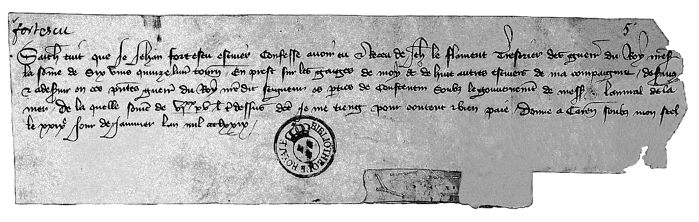 fortescu 5
Sachent tuit que Je Jehan fortescu escuier Confesse avoir eu & Receu de Jeh le flament Tresorier des guerres du Roy nress
la somme de Six vins quinze livres tourn En prest sur les gaiges de moy & de huit autres escuiers de ma compaignie
& en ces pntes guerres du Roy mondit seigneur es pties de Constentin soubz le gouvernement de mess lamiral de la
mer De la quelle somme de dessus dce je me tieng pour content & bien paie Donne a Caren soubz mon seel
le jour de Janvier Lan mil
BIBLIOTHEQUE ROYALE